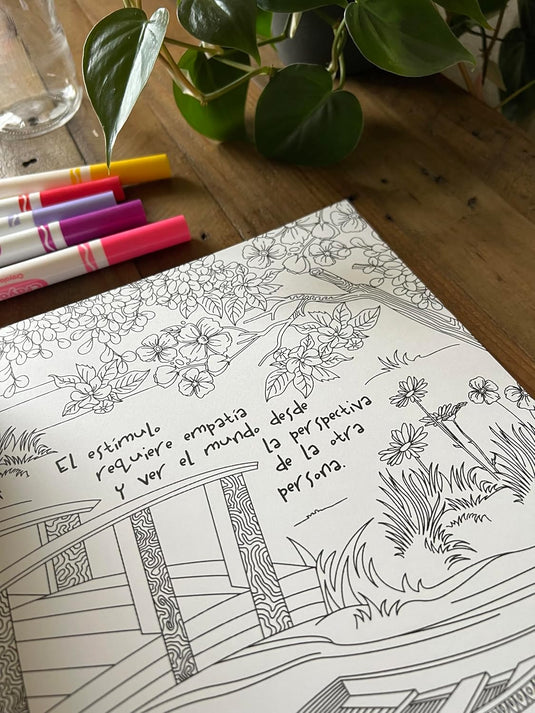 El estimulo
requiere empatía
y ver el mundo desde
la perspectiva
de la otra
persona.